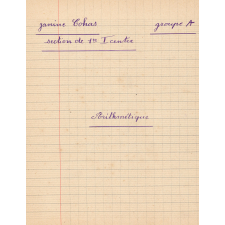 Janine Cohas groupe A
section de 1re I centre
Arithmétique